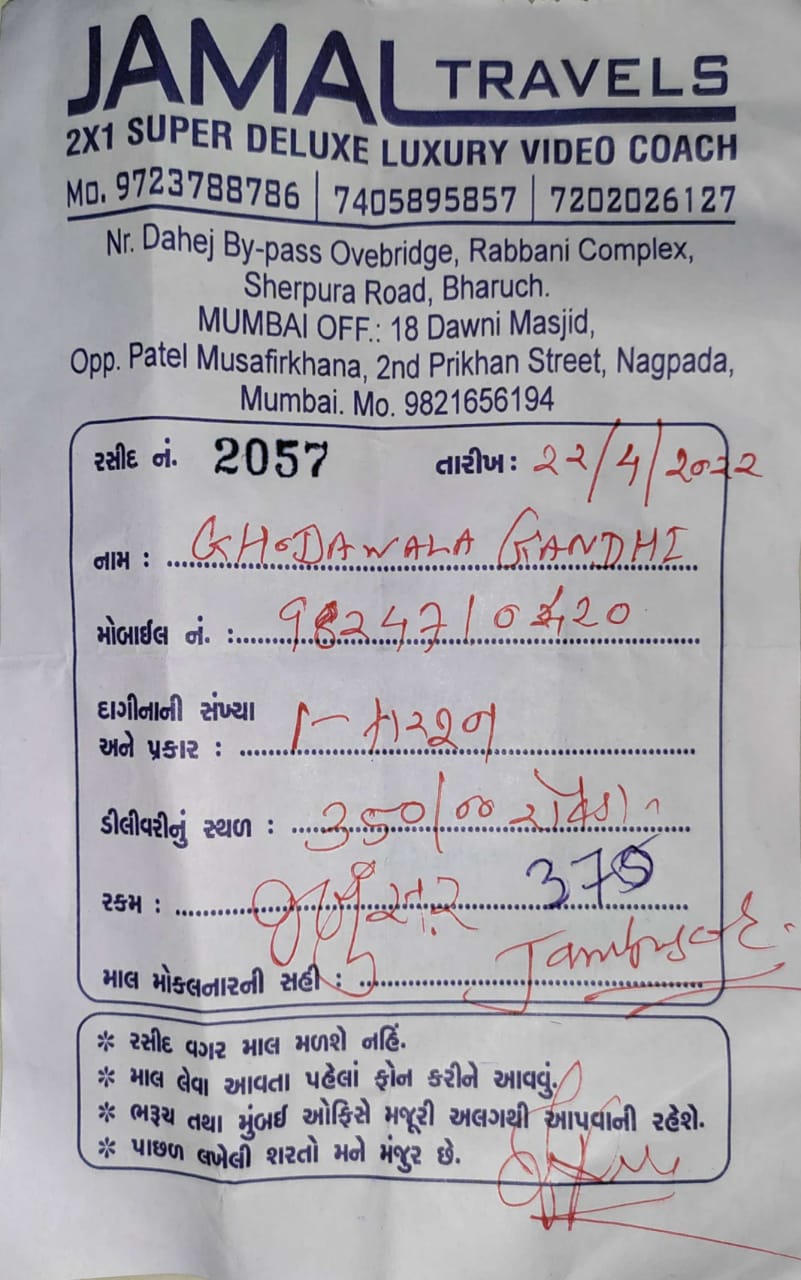 JAMAL TRAVELS
2X1 SUPER DELUXE LUXURY VIDEO COACH
Mo. 9723788786 | 7405895857 | 7202026127
Nr. Dahej By-pass Ovebridge, Rabbani Complex,
Sherpura Road, Bharuch.
MUMBAI OFF.: 18 Dawni Masjid,
Opp. Patel Musafirkhana, 2nd Prikhan Street, Nagpada,
Mumbai. Mo. 9821656194
રસીદ નં. 2057 તારીખ: ૨૨/4/૨૦૨૨
નામ : GHODAWALA GANDHI
મોબાઈલ નં. :
દાગીનાની સંખ્યા
અને પ્રકાર : 1-
ડીલીવરીનું સ્થળ :
રકમ : જંબુસર 375
માલ મોકલનારની સહી : Jambusar.
* રસીદ વગર માલ મળશે નહિં.
* માલ લેવા આવતા પહેલાં ફોન કરીને આવવું.
* ભરૂચ તથા મુંબઈ ઓફિસે મજૂરી અલગથી આપવાની રહેશે.
* પાછળ લખેલી શરતો મને મંજુર છે.